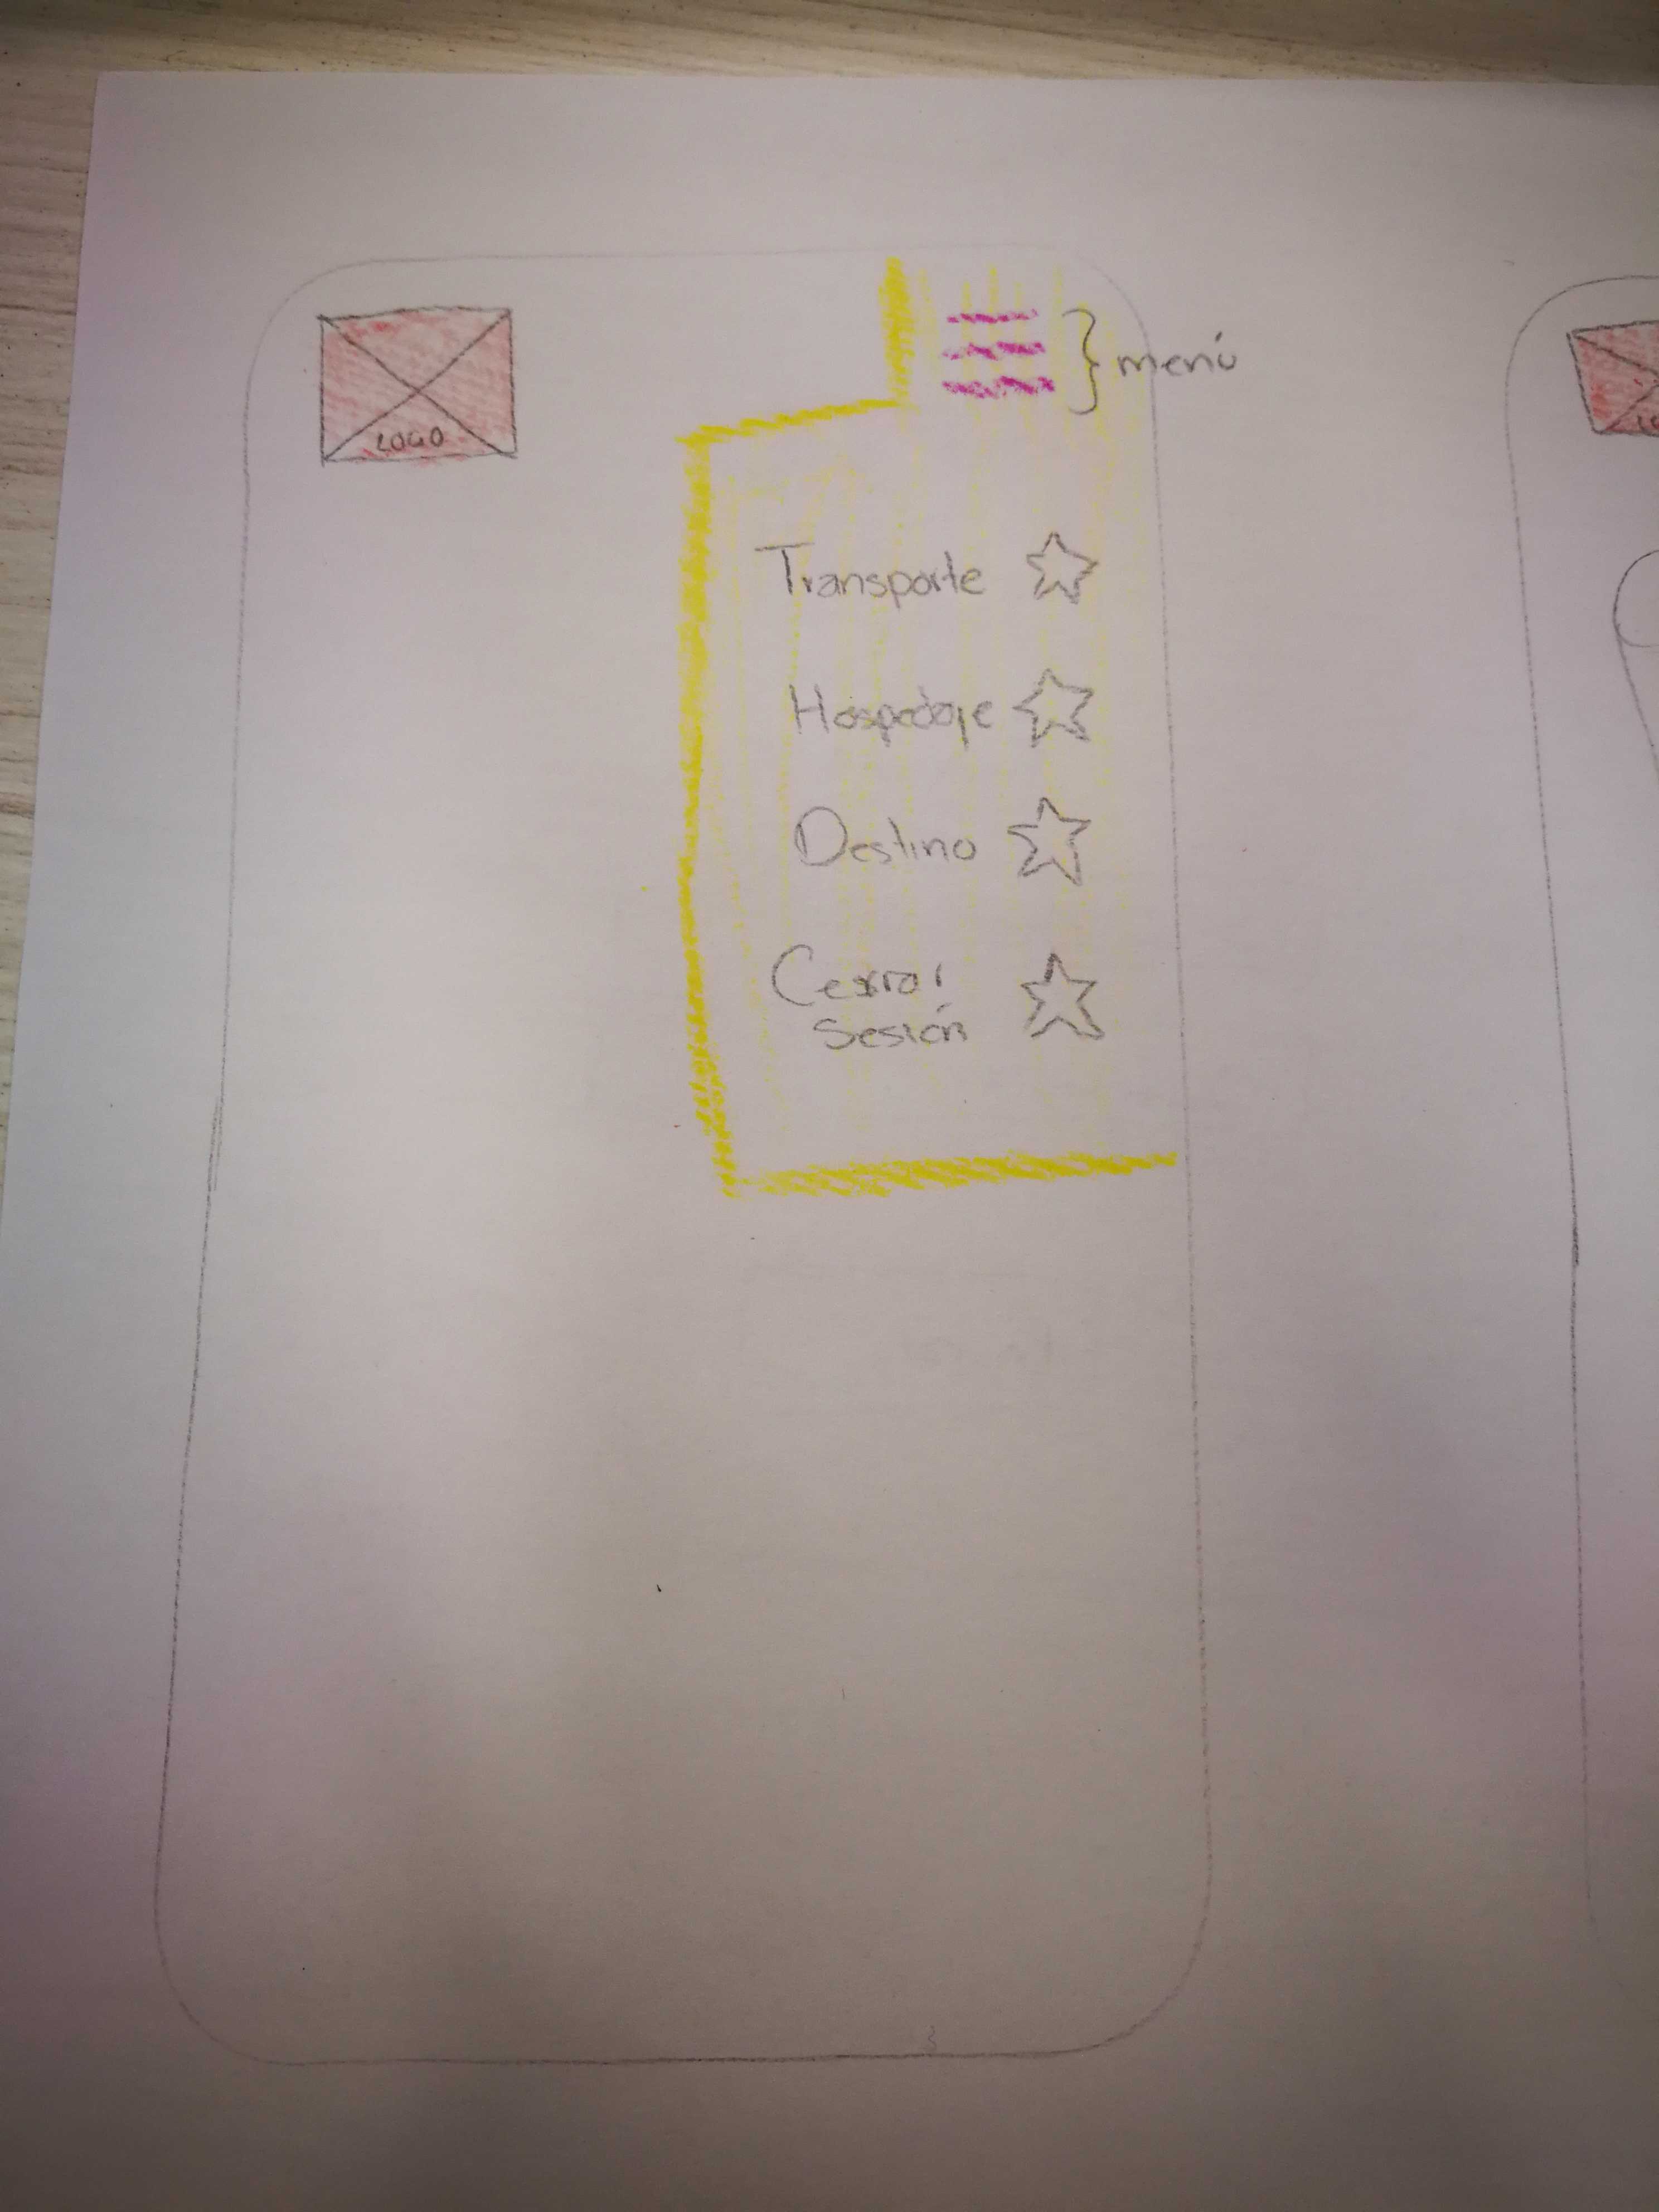 LOGO
menú
Transporte
Hospedaje
Destino
Cerrar
Sesión